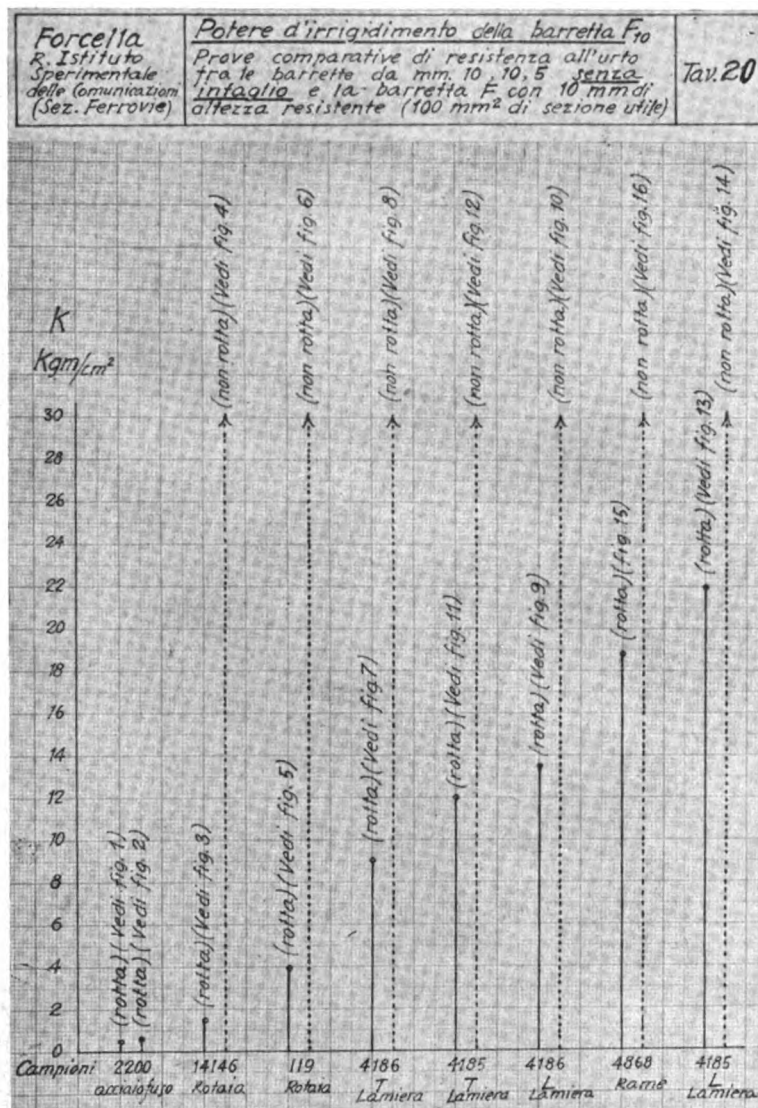 Forcella
R. Istituto
Sperimentale
delle Comunicazioni
(Sez. Ferrovie)
Potere d'irrigidimento della barretta F10
Prove comparative di resistenza all'urto
fra le barrette da mm. 10,10,5 senza
intaglio e la barretta F con 10 mm di
altezza resistente (100 mm² di sezione utile)
Tav. 20
K
Kgm/cm²
30
28
26
24
22
20
18
16
14
12
10
8
6
4
2
0
(rotta)(Vedi fig. 1)
(rotta)(Vedi fig. 2)
(rotta)(Vedi fig. 3)
(non rotta)(Vedi fig. 4)
(rotta)(Vedi fig. 5)
(non rotta)(Vedi fig. 6)
(rotta)(Vedi fig. 7)
(non rotta)(Vedi fig. 8)
(rotta)(Vedi fig. 11)
(non rotta)(Vedi fig. 12)
(rotta)(Vedi fig. 9)
(non rotta)(Vedi fig. 10)
(rotta)(fig. 15)
(non rotta)(Vedi fig. 16)
(rotta)(Vedi fig. 13)
(non rotta)(Vedi fig. 14)
Campioni 2200 14146 119 4186 4185 4186 4868 4185
acciaio fuso Rotaia Rotaia T Lamiera T Lamiera L Lamiera Rame L Lamiera